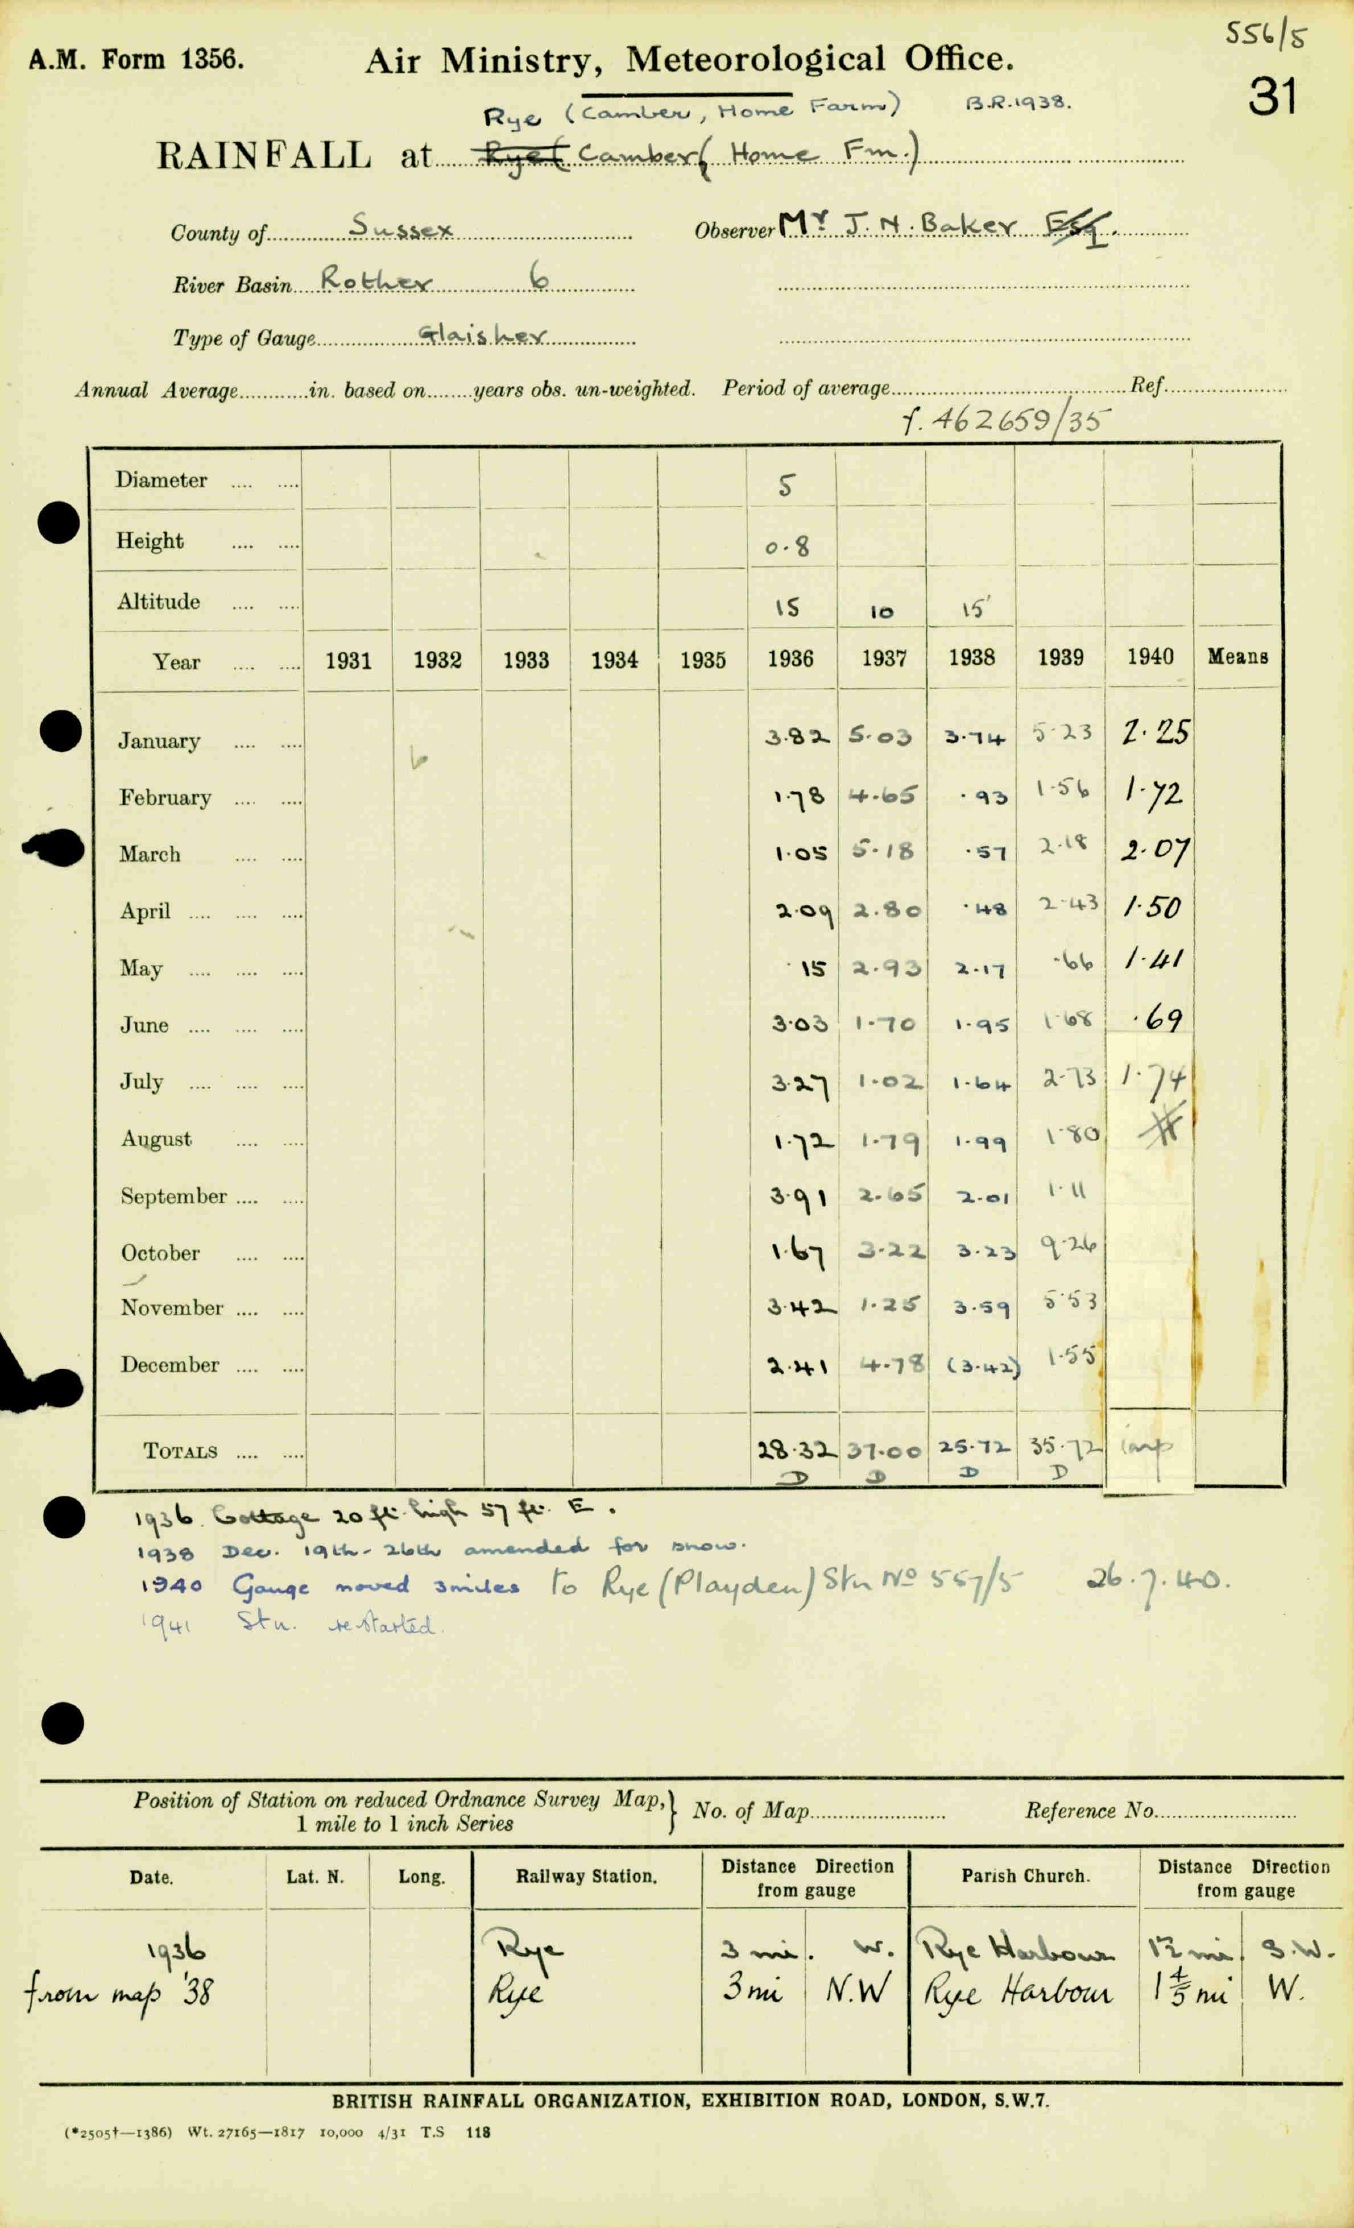 556/5
A.M. Form 1356. Air Ministry, Meteorological Office.
31
Rye (Camber, Home Farm) B.R. 1938.
RAINFALL at Rye ( Camber ( Home Fm.)
County of Sussex Observer Mr J. N. Baker Esq.
River Basin Rother 6
Type of Gauge Glaisher
Annual Average in. based on years obs. un-weighted. Period of average Ref.
f. 462659/35
Diameter 5
Height 0.8
Altitude 15 10 15'
Year 1931 1932 1933 1934 1935 1936 1937 1938 1939 1940 Means
January 3.82 5.03 3.74 5.23 2.25
February 1.78 4.65 .93 1.56 1.72
March 1.05 5.18 .57 2.18 2.07
April 2.09 2.80 .48 2.43 1.50
May .15 2.93 2.17 .66 1.41
June 3.03 1.70 1.95 1.68 .69
July 3.27 1.02 1.64 2.73 1.74
August 1.72 1.79 1.99 1.80
September 3.91 2.65 2.01 1.11
October 1.67 3.22 3.23 9.26
November 3.42 1.25 3.59 5.53
December 2.41 4.78 (3.42) 1.55
TOTALS 28.32 37.00 25.72 35.72 imp
D D D D
1936. Cottage 20 ft. high 57 ft. E.
1938 Dec. 19th - 26th amended for snow.
1940 Gauge moved 3 miles to Rye (Playden) Stn No 557/5 26.7.40.
1941 Stn. restarted.
Position of Station on reduced Ordnance Survey Map, 1 mile to 1 inch Series } No. of Map Reference No.
Date. Lat. N. Long. Railway Station. Distance Direction from gauge Parish Church. Distance Direction from gauge
1936 Rye 3 mi. W. Rye Harbour 1½ mi. S.W.
from map '38 Rye 3 mi N.W Rye Harbour 1 4/5 mi W.
BRITISH RAINFALL ORGANIZATION, EXHIBITION ROAD, LONDON, S.W.7.
(*2505†—1386) Wt. 27165—1817 10,000 4/31 T.S 118